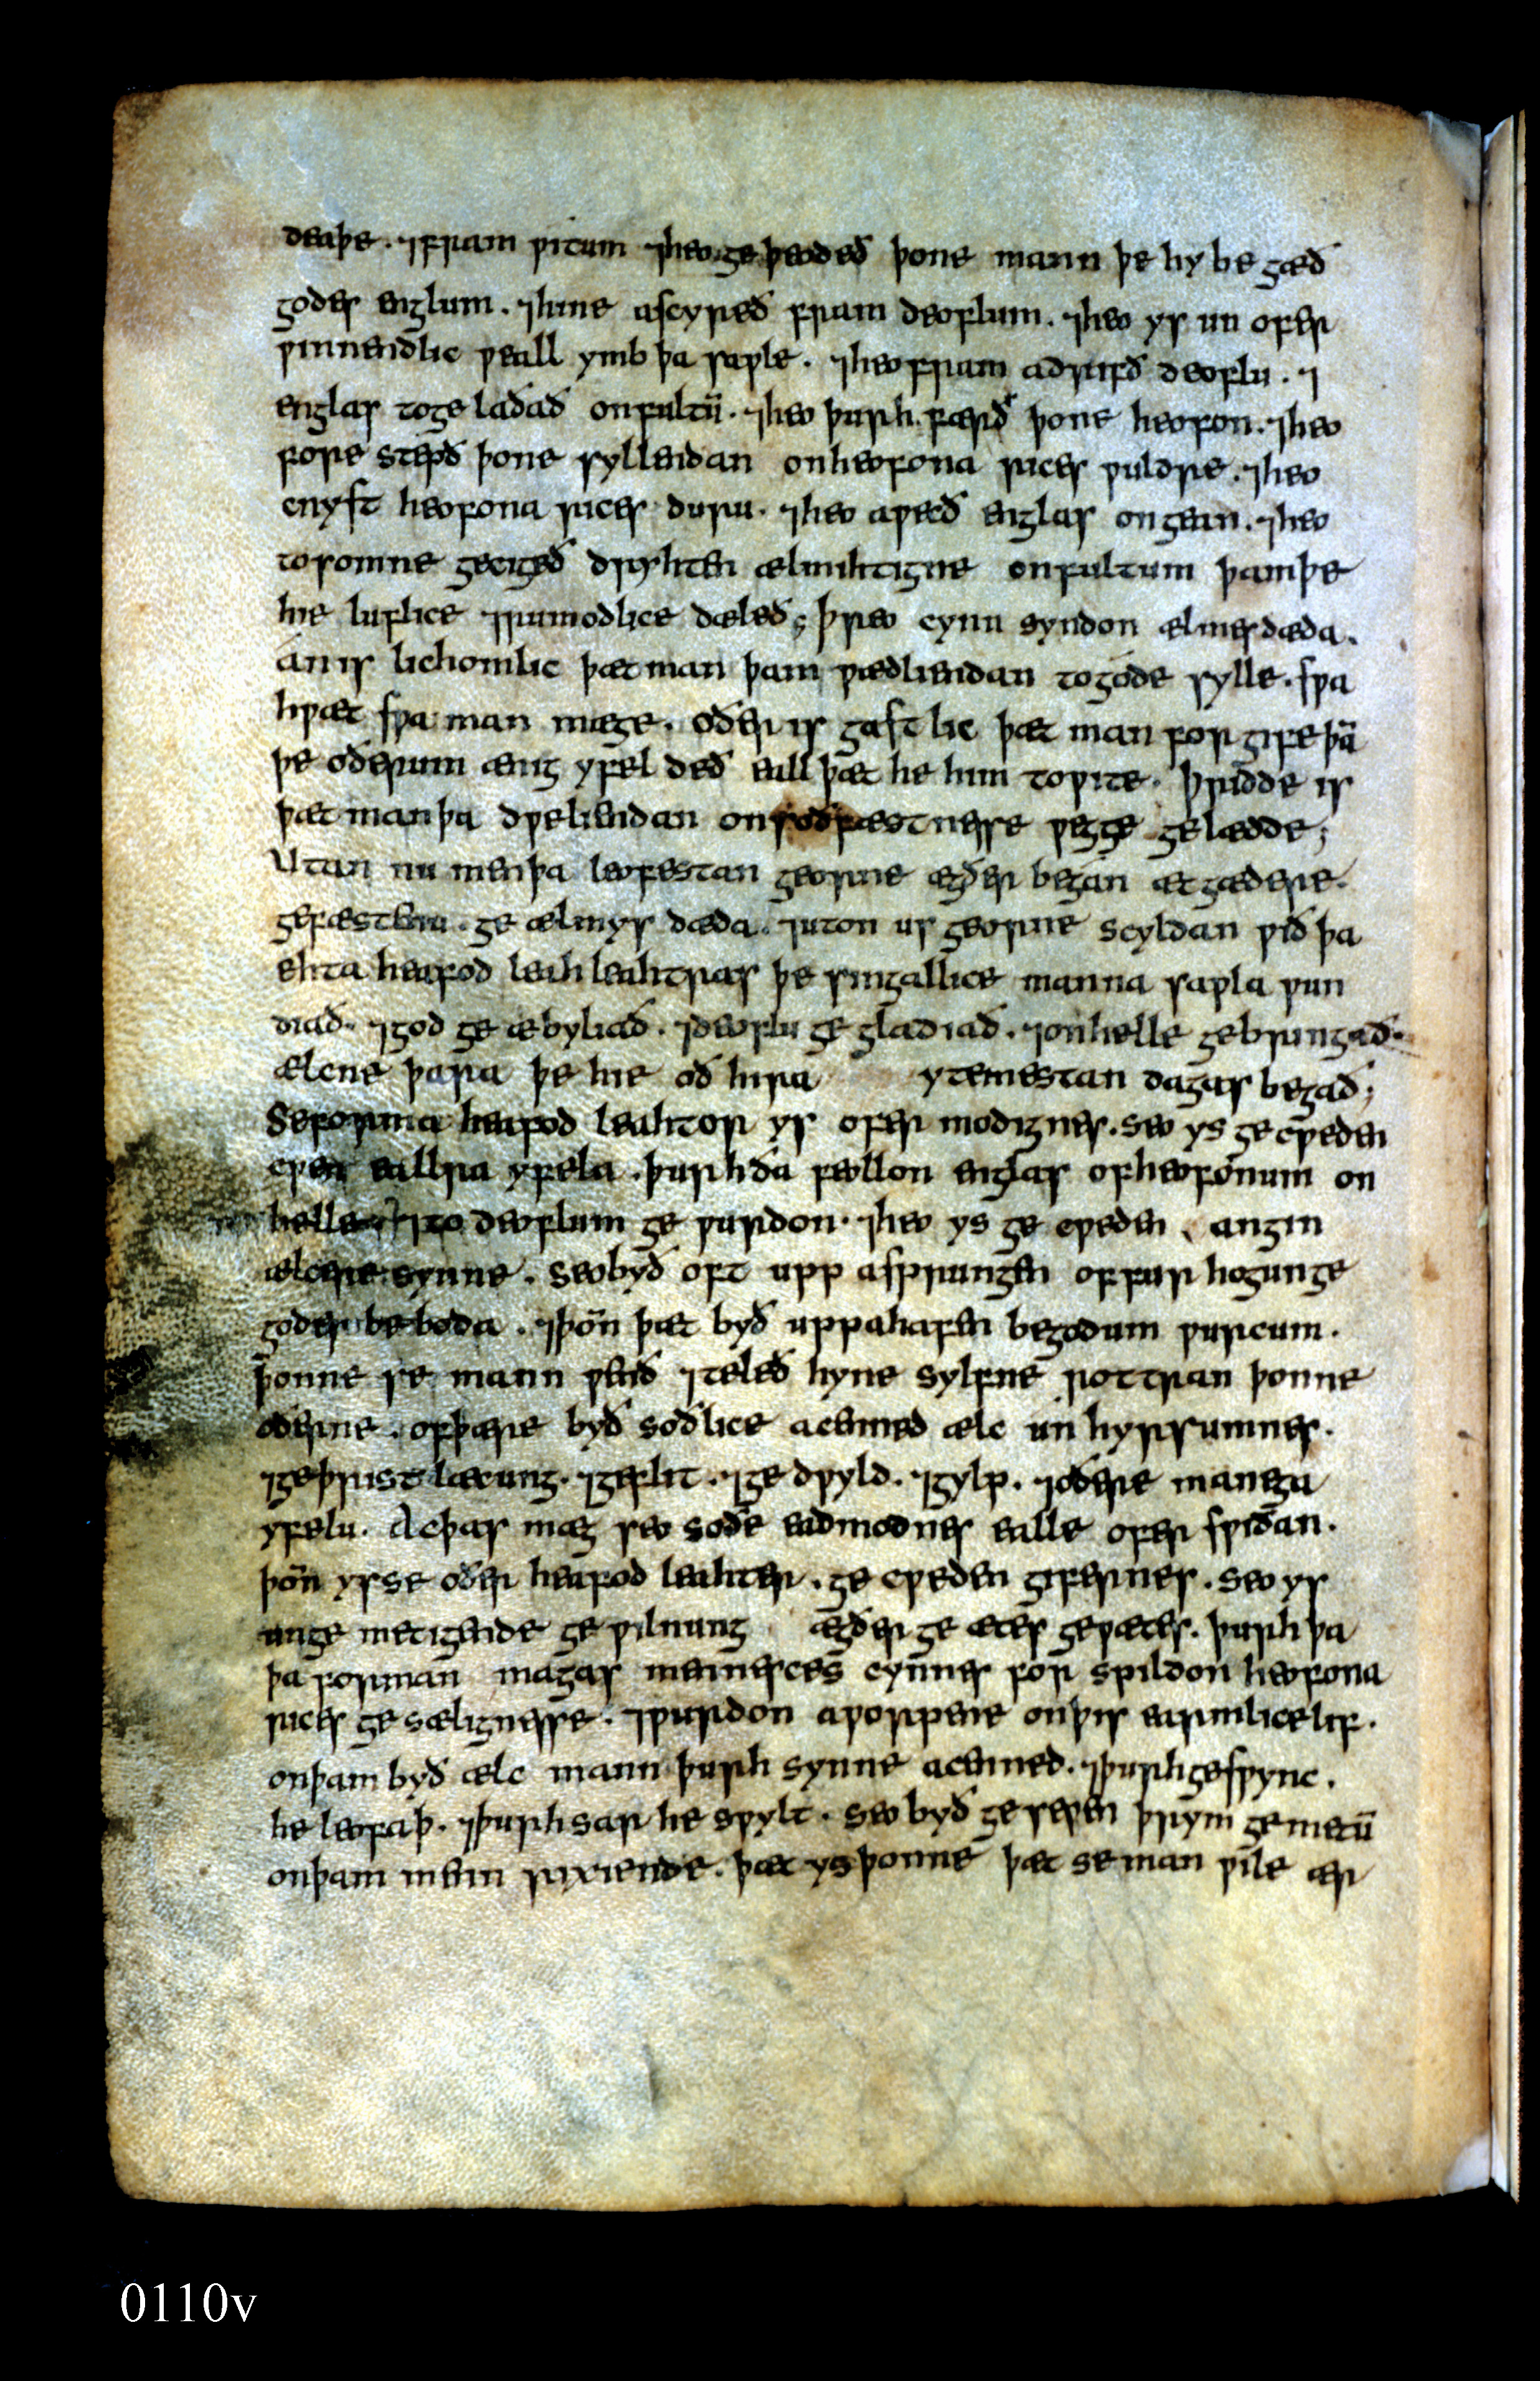 deaþe. ⁊fram ƿitum ⁊heo geþeodeð þone mann þe hy be gæð
godes englum. ⁊hine ascyreð fram deoflum. ⁊heo ys un ofer
ƿinnendlic ƿeall ymb þa saƿle. ⁊heo fram adrifð deoflu. ⁊
englas toge ladað onfultū. ⁊heo þurh færð þone heofon. ⁊heo
fore stepð þone syllendan onheofona rices ƿuldre. ⁊heo
cnyst heofona rices duru. ⁊heo aƿecð englas ongean. ⁊heo
tosomne gecigeð dryhten ælmihtigne onfultum þamþe
hie luflice ⁊rumodlice dæleð; þreo cynn syndon ælmesdæda.
án is lichomlic þæt man þam ƿædliendan togóde sylle. sƿa
hƿæt sƿa man mæge. oðer is gastlic þæt man for gife þā
þe oðerum ænig yfel deð eall þæt he him toƿite. þridde is
þæt man þa dƿeliendan onsoðfæstnesse ƿegge gelædde;
Utan nu men þa leofestan georne ægðer began æt gædere.
gefæstenu. ge ælmys dæda. ⁊uton us georne scyldan ƿið þa
ehta heafod leah leahtras þe singallice manna saƿla ƿun
diað. ⁊god ge æbyliað. ⁊deoflu ge gladiað. ⁊onhelle gebringað.
ælcne þara þe hie oð hira ytemestan dagas begað;
Seforma heafod leahtor ys ofer modignes. seo ys ge cƿeden
cƿen eallra yfela. þurh ða feollon englas ofheofonum on
helle ⁊to deoflum ge ƿurdon. ⁊heo ys ge cƿeden angin
ælcere synne. seobyð oft upp asprungen offorhogunge
godes beboda. ⁊þoñ þæt byð uppahafen begodum ƿurcum.
þonne se mann ƿenð ⁊teleð hyne sylfne sottran þonne
oðerne. ofþære byð soðlice acenned ælc un hyrsumnes.
⁊geþristlæcung. ⁊geflit. ⁊ge dƿyld. ⁊gylp. ⁊oðere manega
yfelu. Ac þas mæg seo soðe eadmodnes ealle ofer sƿiðan.
þoñ ysse oðer heafod leahter. ge cƿeden gifernes. seo ys
unge metigende ge ƿilnung ægðer ge ætes geƿætes. þurh þa
þa forman magas mennesces cynnes for spildon heofona
rices ge sælignesse. ⁊ƿurdon aƿorpene onþis earmlicelif.
onþam byð ælc mann þurh synne acenned. ⁊þurhgesƿync.
he leofaþ. ⁊þurhsar he sƿylt. seo byð ge seƿen þrym gemetū
onþam menn rixiende. þæt ys þonne þæt se man ƿile ær
0110v